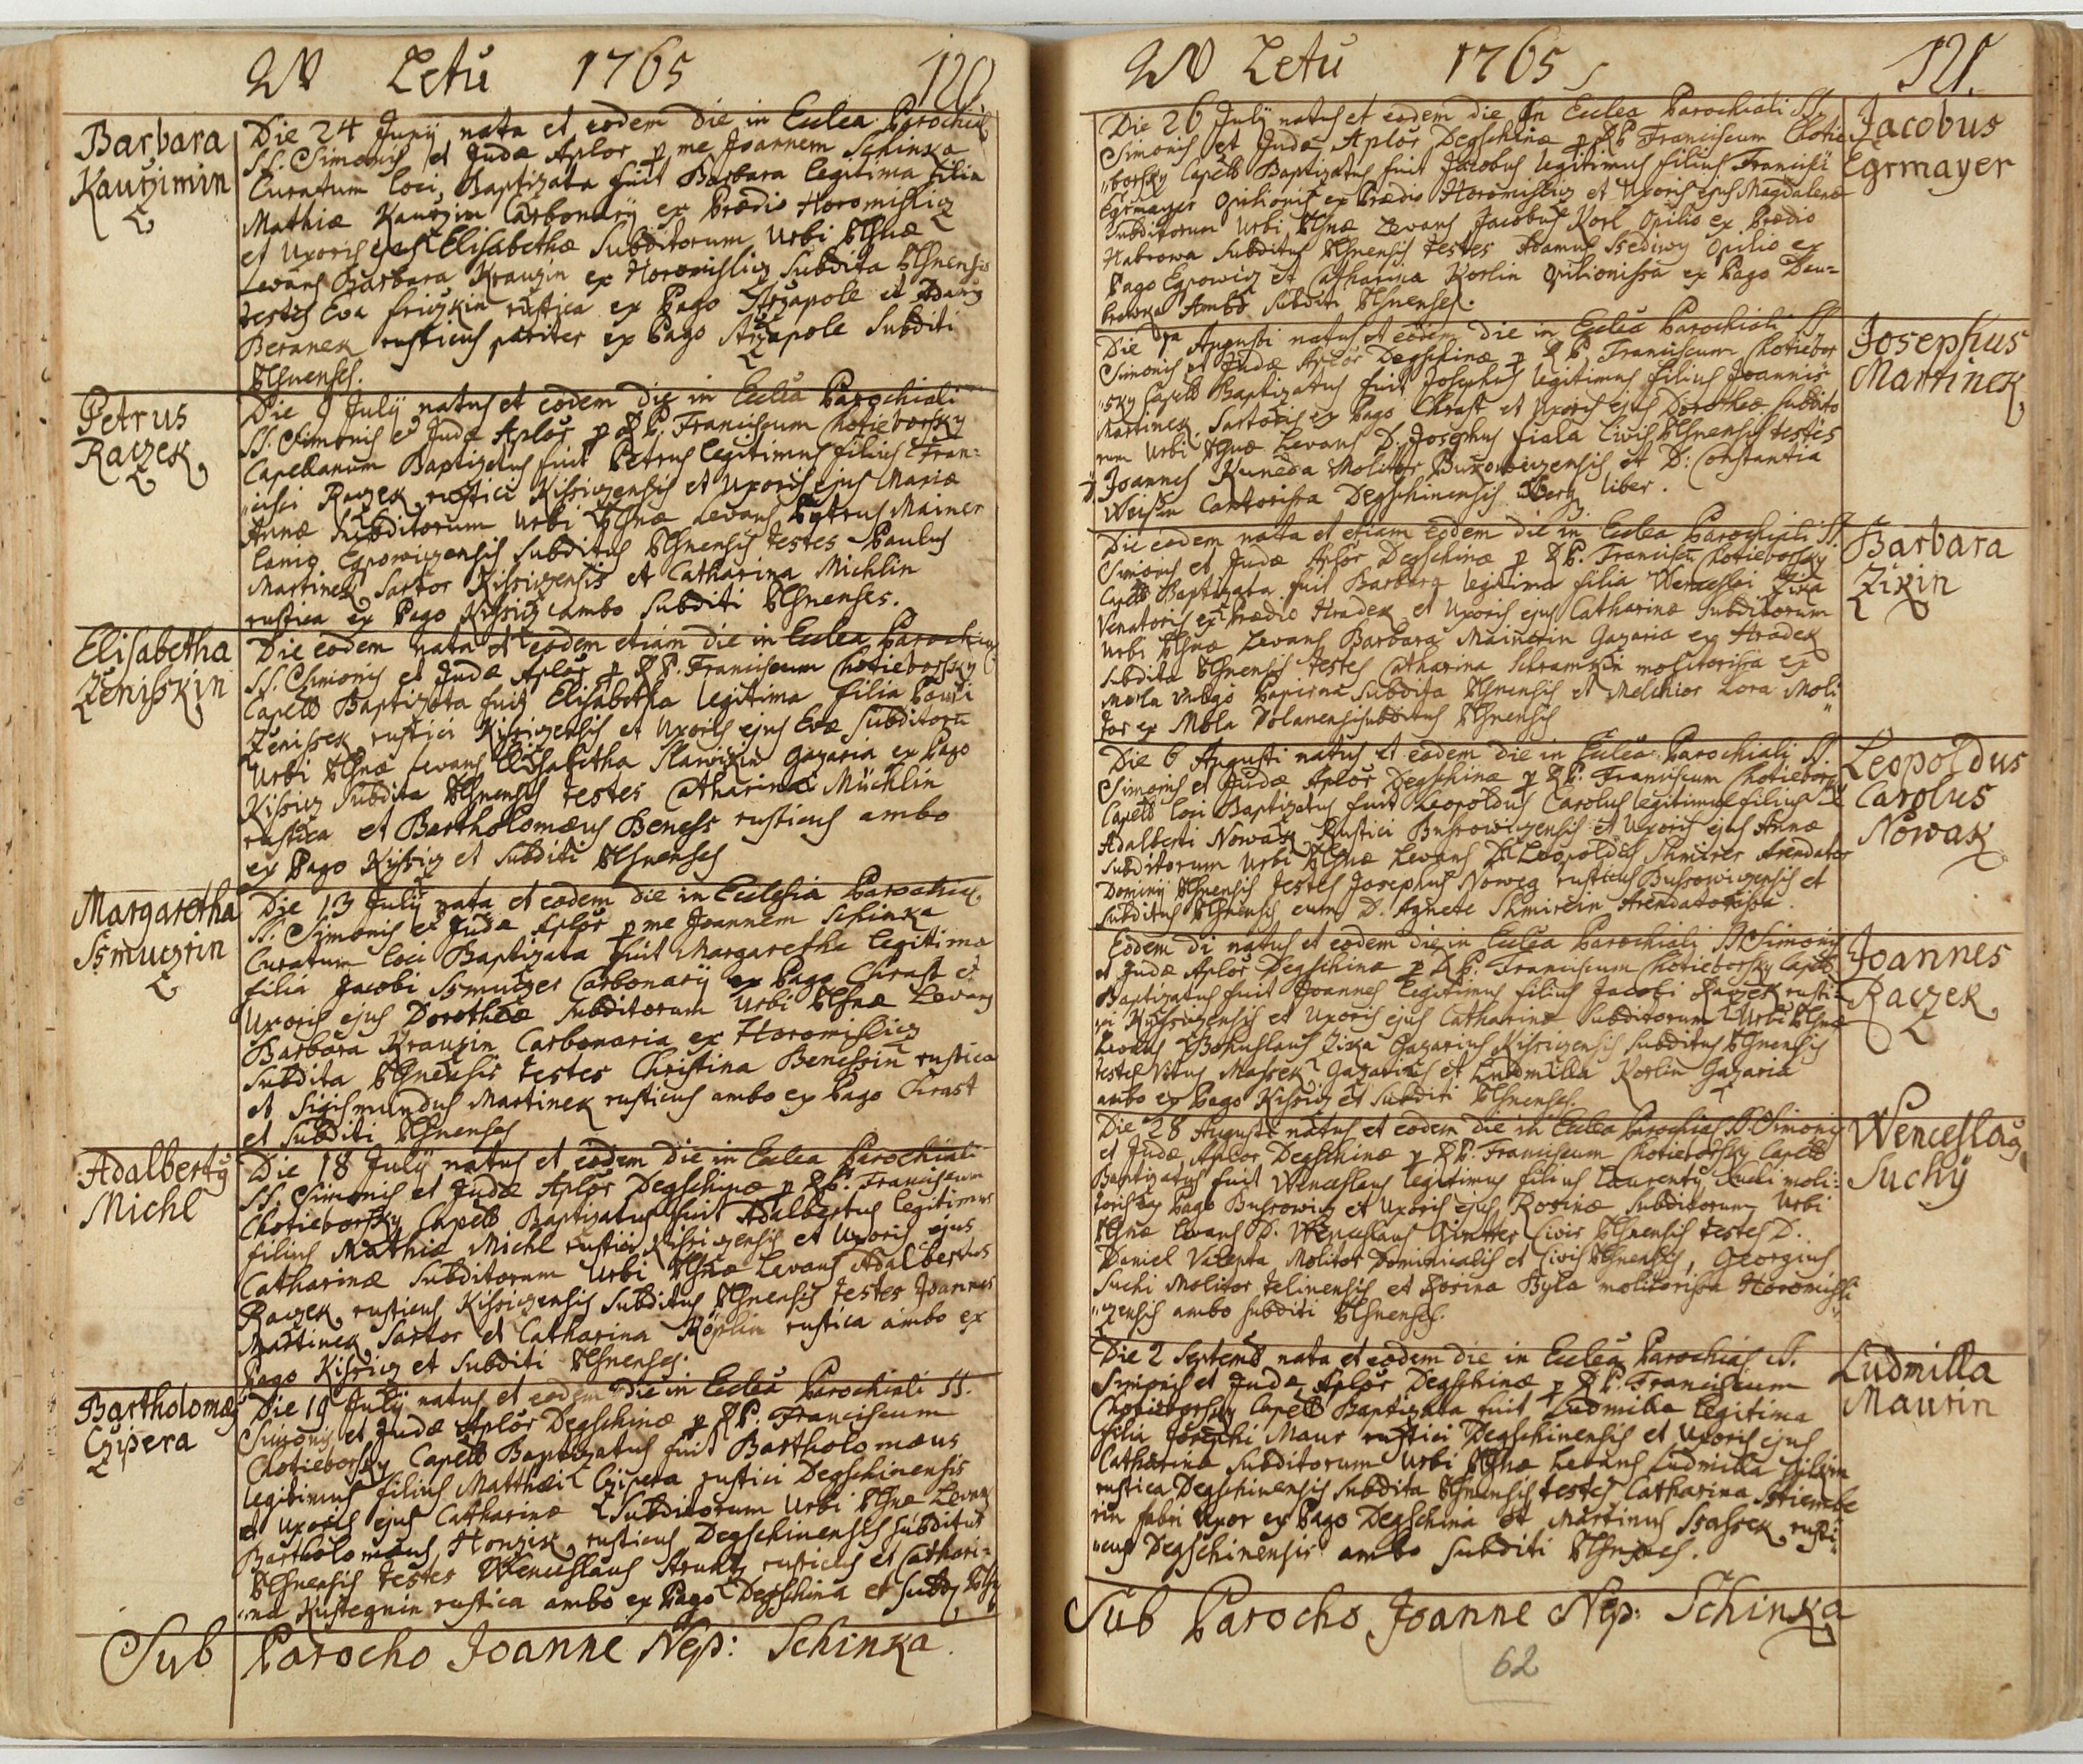 W Letu 1765 120
Barbara
Kauzimin
Die 24 Junÿ nata et eodem die in Eccl̃ea Parochial
SS. Simonis et Judæ Aplor̃ p̱ me Joannem Schinka
Curatum loci, Baptizata fuit Barbara legitima filia
Mathiæ Kauzim Carbonarÿ ex Prædio Horomislicz
et Uxoris ejus Elisabethæ Subditorum Urbi Plsnæ
Levans Barbara Krauzin ex Horomislicz Subdita Plsnensis
testes Eva friczkin rustica ex Pago Strzapole et Adamus
Beranek rusticus pariter ex Pago Strzapole Subditi
Plsnenses.
Petrus
Raczek
Die 9 Julÿ natus et eodem die in Eccl̃ea Parochiali
SS. Simonis et Judæ Aplor̃ p̱ R.P. Franciscum Chotieborsky
Capellanum Baptizatus fuit Petrus legitimus filius Fran:
cisci Raczek rustici Kissiczensis et Uxoris ejus Mariæ
Annæ Subditorum Urbi Plsnæ Levans Petrus Mainer
Lanio Egpowiczensis Subditus Plsnensis testes Paulus
Martinek Sartor Kissiczensis et Catharina Michlin
rustica ex Pago Kissicz ambo Subditi Plsnenses.
Elisabetha
Zenisskin
Die eodem nata et eodem etiam die in Eccl̃ea Parochiali
SS. Simonis et Judæ Aplor̃ p̱ R.P. Franciscum Chotieborsky
Capell̃ Baptizata fuit Elisabetha legitima filia Pauli
Zenissek rustici Kissiczensis et Uxoris ejus Evæ Subditorũ
Urbi Plsnæ Levans Elisabetha Slawikin Gazaria ex Pago
Kissicz Subdita Plsnensis testes Catharina Müchlin
rustica et Bartholomæus Beness rusticus ambo
ex Pago Kissicz et Subditi Plsnenses
Margaretha
Ssmuczrin
Die 13 Julÿ nata et eodem die in Ecclesia Parochial
SS. Simonis et Judæ Aplor̃ p̱ me Joannem Schinka
Curatum loci Baptizata fuit Margaretha legitima
filia Jacobi Ssmuczer Carbonarÿ ex Pago Chrast et
Uxoris ejus Dorotheæ Subditorum Urbi Plsnæ Levans
Barbara Krauzin Carbonaria ex Horomislicz
Subdita Plsnensis testes Christina Benessin rustica
et Sigismundus Martinek rusticus ambo ex Pago Chrast
et Subditi Plsnenses
Adalbertÿ
Michl
Die 18 Julÿ natus et eodem die in Eccl̃ea Parochiali
SS. Simonis et Judæ Aplor̃ Degschinæ p̱ R.P. Franciscum
Chotieborsky Capell̃ Baptizatus fuit Adalbertus legitimus
filius Mathiæ Michl rustici Kissiczensis et Uxoris ejus
Catharinæ Subditorum Urbi Plsnæ Levans Adalbertus
Raczek rusticus Kissiczensis Subditus Plsnensis testes Joannes
Martinek Sartor et Catharina Röslin rustica ambo ex
Pago Kissicz et Subditi Plsnenses.
Bartholomæ
Czipera
Die 19 Julÿ natus et eodem die in Eccl̃ea Parochiali SS.
Simonis et Judæ Aplor̃ Degschinæ p̱ R.P. Franciscum
Chotieborsky Capell̃ Baptizatus fuit Bartholomæus
legitimus filius Matthæi Czipera rustici Degschinensis
et Uxoris ejus Catharinæ Subditorum Urbi Plsnæ Levans
Bartholomæus Honzik rusticus Degschinensis Subditus
Plsnensis testes Wenceslaus Struntz rusticus et Cathari:
na Kustegnin rustica ambo ex Pago Degschina et Subd
Sub Parocho Joanne Nep: Schinka.
W Letu 1765 121.
Die 26 Julÿ natus et eodem die in Eccl̃ea Parochiali SS.
Simonis et Judæ Aplor̃ Degschinæ p̱ R.P. Franciscum Chotie
borsky Capell̃ Baptizatus fuit Jacobus legitimus filius Francisci
Egrmayer Opilionis ex Prædio Horomislicz et Uxoris ejus Magdalenæ
Subditorum Urbi Plsnæ Levans Jacobus Korl Opilio ex Prædio
Habrowa Subditus Plsnensis testes Adamus Ssediwy Opilio ex
Pago Egpowicz et Catharina Korlin Opilionissa ex Pago Dau=
browka Ambo Subditi Plsnenses.
Jacobus
Egrmayer
Die Augusti natus et eodem die in Eccl̃ea Parochiali SS.
Simonis et Judæ Aplor̃ Degschinæ p̱ R.P. Franciscum Chotiebor
sky Capell̃ Baptizatus fuit Josephus legitimus filius Joannis
Martinek Sartoris ex Pago Chrast et Uxoris ejus Dorotheæ Subdito
rum Urbi Plsnæ Levans D. Josephus fiala Civis Plsnensis testes
Joannes Kuneda Molitor Bukowiczensis et D: Constantia
Weisin Cantorissa Degschinensis liber.
Josephus
Martinek
Die eodem nata et etiam eodem die in Eccl̃ea Parochiali SS.
Simonis et Judæ Aplor̃ Degschinæ p̱ R.P. Franciscũ Chotieborsky
Capell̃ Baptizata fuit Barbara legitima filia Wenceslai Zika
Venatoris ex Prædio Hradek et Uxoris ejus Catharinæ Subditorum
Urbi Plsnæ Levans Barbara Mainerin Gazaria ex Hradek
Subdita Plsnensis testes Catharina Schramkin molitorissa ex
mola vulgo Papirna Subdita Plsnensis et Melchior Lora Moli
tor ex Mola Dolanensi Subditus Plsnensis
Barbara
Zikin
Die 6 Augusti natus et eodem die in Eccl̃ea Parochiali SS.
Simonis et Judæ Aplor̃ Degschinæ p̱ R.P. Franciscum Chotieborsky
Capell̃ loci Baptizatus fuit Leopoldus Carolus legitimus filius
Adalberti Nowak Rustici Busrowiczensis et Uxoris ejus Annæ
Subditorum Urbi Plsnæ Levans D. Leopoldus Shmirer Arendator
Dominÿ Plsnensis testes Josephus Norweg rusticus Busrowiczensis et
Subditus Plsnensis cum D. Agnete Shmirein Arendatorissa.
Leopoldus
Carolus
Nowak
Eodem di natus et eodem die in Eccl̃ea Parochiali SS Simonis
et Judæ Aplor̃ Degschinæ p̱ R.P. Franciscum Chotieborsky Capell̃
Baptizatus fuit Joannes legitimus filius Jacobi Raczek rusti=
ci Kissiczensis et Uxoris ejus Catharinæ Subditorum Urbi Plsnæ
Levans Bohuslaus Zika Gazarius Kissiczensis Subditus Plsnensis
testes Vitus Massek Gazarius et Ludmilla Korlin Gazaria
ambo ex Pago Kissicz et Subditi Plsnenses.
Joannes
Raczek
Die 28 Augusti natus et eodem die in Eccl̃ea Parochiali SS Simonis
et Judæ Aplor̃ Degschinæ p̱ R.P. Franciscum Chotieborsky Capell̃
Baptizatus fuit Wenceslaus legitimus filius Laurentÿ Suchi moli:
toris ex Pago Busrowicz et Uxoris ejus Rosinæ Subditorum Urbi
Plsnæ Levans D. Wenceslaus Gintter Civis Plsnensis testes D.
Daniel Valenta Molitor Dominicalis et Civis Plsnensis, Georgius
Suchi Molitor telinensis et Rosina Byla molitorissa Horomisli
czensis ambo Subditi Plsnenses.
Wenceslaus
Suchÿ
Die 2 Septemb nata et eodem die in Eccl̃ea Parochial SS.
Simonis et Judæ Aplor̃ Degschinæ p̱ R.P. Franciscum
Chotieborsky Capell̃ Baptizata fuit Ludmilla legitima
filia Josephi Maur rustici Degschinensis et Uxoris ejus
Catharinæ Subditorum Urbi Plsnæ Levans Ludmilla
rustica Degschinensis Subdita Plsnensis testes Catharina Sstiembe
rin fabri Uxor ex Pago Degschina et Martinus Ssassek rusti
cus Degschinensis ambo Subditi Plsnses.
Ludmilla
Maurin
Sub Parocho Joanne Nep: Schinka
62